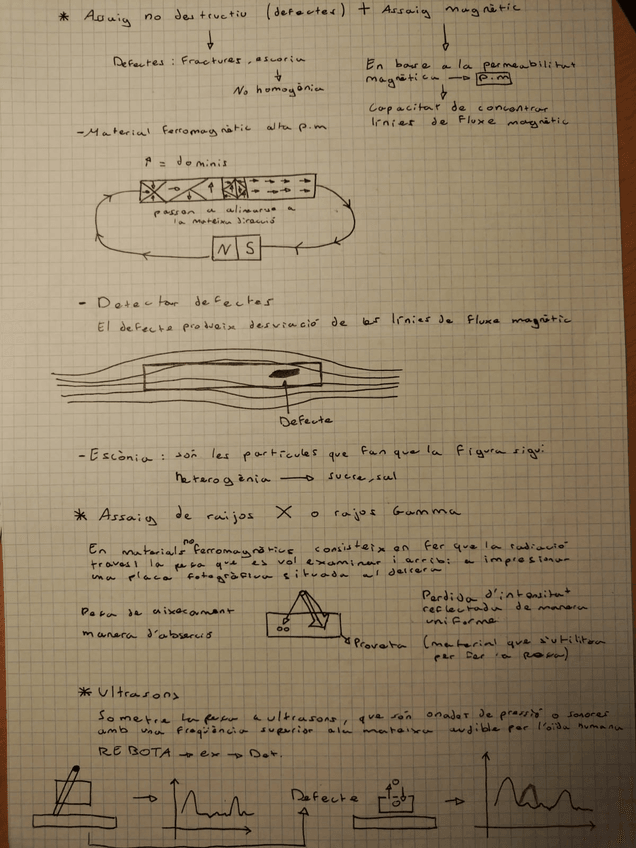 * Assaig no destructiu (defectes) + Assaig magnètic
Defectes: Fractures, escoria
No homogènia
En base a la permeabilitat
magnètica → p.m
Capacitat de concentrar
línies de fluxe magnètic
- Material ferromagnètic alta p.m
= dominis
passen a alinearse a
la mateixa direcció
N S
- Detectar defectes
El defecte produeix desviació de les línies de fluxe magnètic
Defecte
- Escònia: són les partícules que fan que la figura sigui
heterogènia → sucre, sal
* Assaig de raijos X o rajos Gamma
En materials no ferromagnètics consisteix en fer que la radiació
travesi la peça que es vol examinar i arribi a impresionar
una placa fotogràfica situada al derrera
Peça de aixecament
manera d'absorció
Proveta (material que s'utilitza
per fer la
Perdida d'intensitat
reflectada de manera
uniforme
* Ultrasons
Sometre la peça a ultrasons, que són onades de pressió o sonores
amb una freqüència superior a la mateixa audible per l'oïda humana
REBOTA → ex → Det.
Defecte